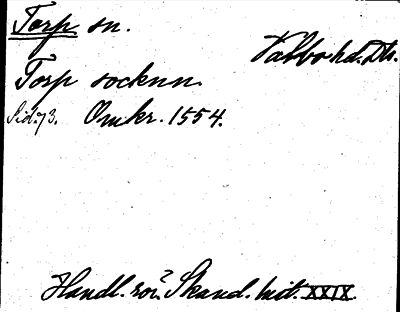 Torp sn.
Valbo hd. Dls.
Torp socknn
Sid. 73. Omkr. 1554.
Handl. rör. Skand. hist. XXIX.